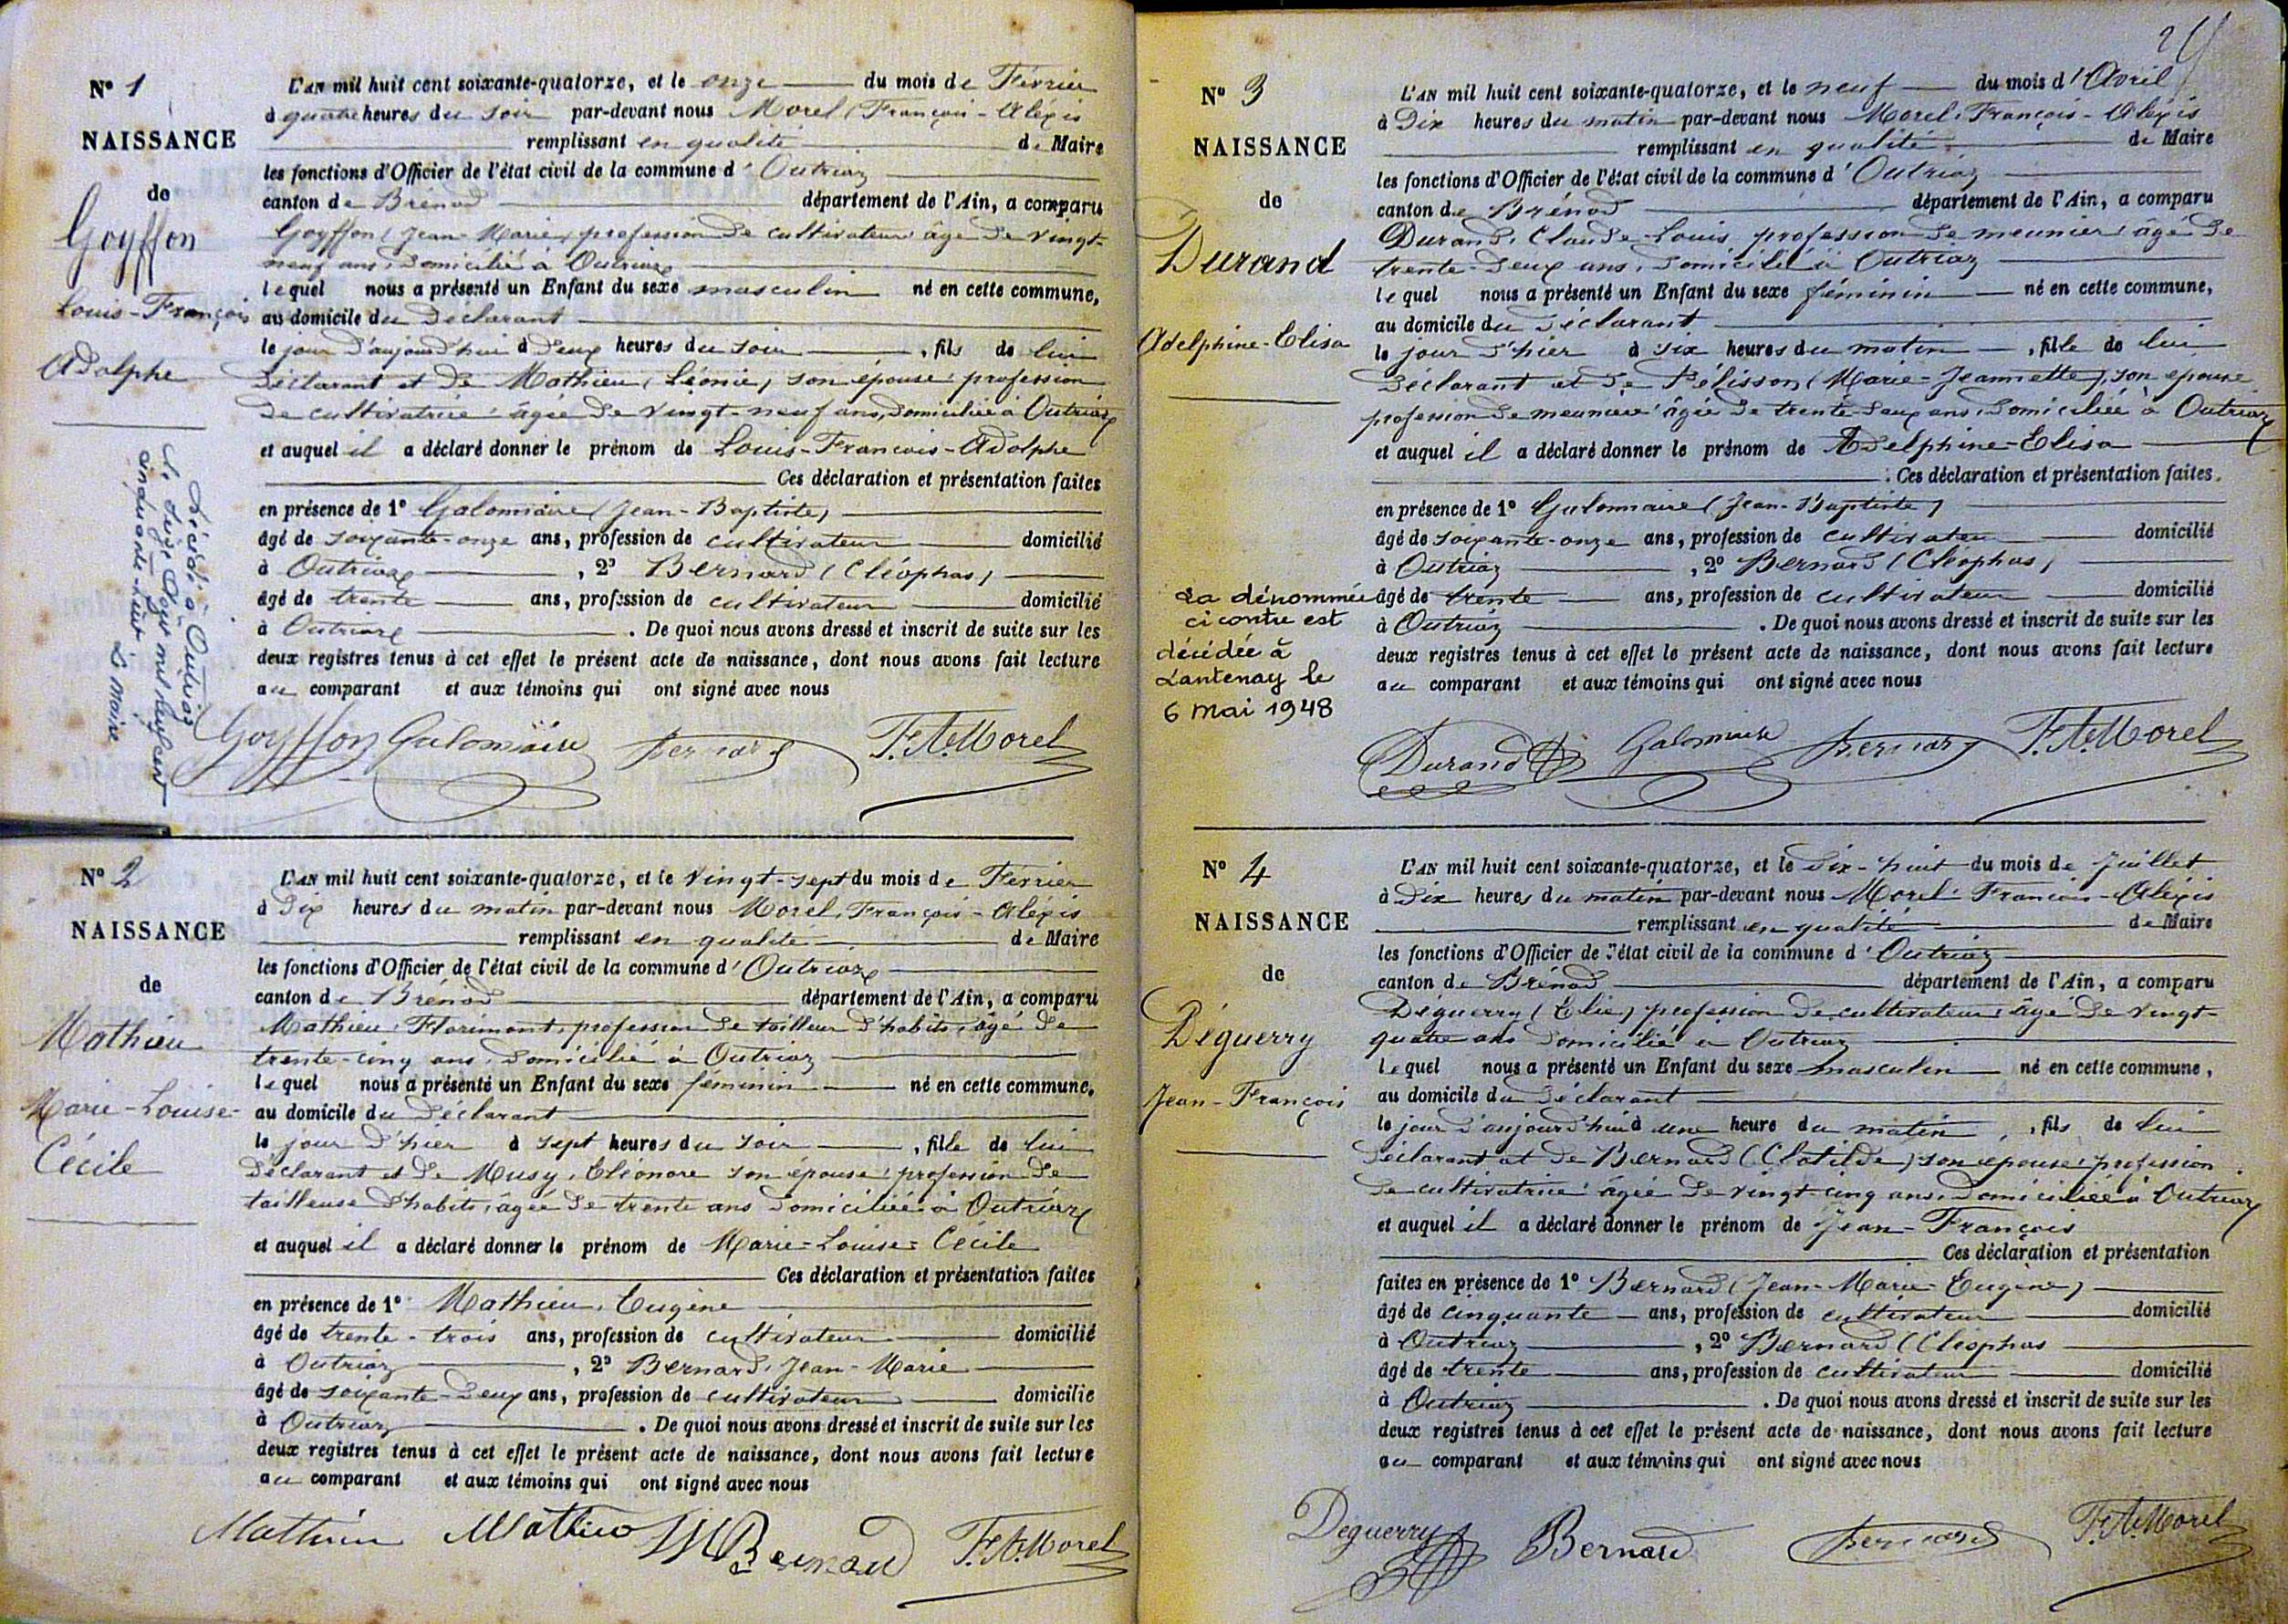 N° 1
NAISSANCE
de
Goyffon
Louis-François
Adolphe
Décédé à Outriaz
le seize Août mil neuf cent
cinquante-huit
Le Maire
L'AN mil huit cent soixante-quatorze, et le onze du mois de Février
à quatre heures du soir par-devant nous Morel (François-Aléxis
remplissant en qualité de Maire
les fonctions d'Officier de l'état civil de la commune d'Outriaz
canton de Brénod département de l'Ain, a comparu
Goyffon (Jean-Marie) profession de cultivateur âgé de vingt-
neuf ans, domicilié à Outriaz
lequel nous a présenté un Enfant du sexe masculin né en cette commune,
au domicile du déclarant
le jour d'aujourd'hui à deux heures du soir, fils de lui
déclarant et de Mathieu (Léonie) son épouse profession
de cultivatrice âgée de vingt-neuf ans, domiciliée à Outriaz
et auquel il a déclaré donner le prénom de Louis-François-Adolphe
Ces déclaration et présentation faites
en présence de 1° Galomaire (Jean-Baptiste)
âgé de soixante-onze ans, profession de cultivateur domicilié
à Outriaz, 2° Bernard (Cléophas)
âgé de trente ans, profession de cultivateur domicilié
à Outriaz. De quoi nous avons dressé et inscrit de suite sur les
deux registres tenus à cet effet le présent acte de naissance, dont nous avons fait lecture
au comparant et aux témoins qui ont signé avec nous
Goyffon Galomaire Bernard F.A.Morel
N° 2
NAISSANCE
de
Mathieu
Marie-Louise-
Cécile
L'AN mil huit cent soixante-quatorze, et le vingt-sept du mois de Février
à dix heures du matin par-devant nous Morel, François-Aléxis
remplissant en qualité de Maire
les fonctions d'Officier de l'état civil de la commune d'Outriaz
canton de Brénod département de l'Ain, a comparu
Mathieu, Florimont, profession de tailleur d'habits, âgé de
trente-cinq ans, domicilié à Outriaz
lequel nous a présenté un Enfant du sexe féminin né en cette commune,
au domicile du déclarant
le jour d'hier à sept heures du soir, fille de lui
déclarant et de Musy, Eléonore son épouse profession de
tailleuse d'habits, âgée de trente ans domiciliée à Outriaz
et auquel il a déclaré donner le prénom de Marie-Louise-Cécile
Ces déclaration et présentation faites
en présence de 1° Mathieu, Eugène
âgé de trente-trois ans, profession de cultivateur domicilié
à Outriaz, 2° Bernard, Jean-Marie
âgé de soixante-deux ans, profession de cultivateur domicilié
à Outriaz. De quoi nous avons dressé et inscrit de suite sur les
deux registres tenus à cet effet le présent acte de naissance, dont nous avons fait lecture
au comparant et aux témoins qui ont signé avec nous
Mathieu Mathieu JMBernard F.A.Morel
N° 3
NAISSANCE
de
Durand
Adelphine-Elisa
La dénommée
ci contre est
décédée à
Lantenay le
6 mai 1948
L'AN mil huit cent soixante-quatorze, et le neuf du mois d'Avril
à dix heures du matin par-devant nous Morel, François-Aléxis
remplissant en qualité de Maire
les fonctions d'Officier de l'état civil de la commune d'Outriaz
canton de Brénod département de l'Ain, a comparu
Durand, Claude-Louis, profession de meunier, âgé de
trente-deux ans, domicilié à Outriaz
lequel nous a présenté un Enfant du sexe féminin né en cette commune,
au domicile du déclarant
le jour d'hier à six heures du matin, fille de lui
déclarant et de Pélisson (Marie-Jeannette) son épouse
profession de meunière âgée de trente-deux ans domiciliée à Outriaz
et auquel il a déclaré donner le prénom de Adelphine-Elisa
Ces déclaration et présentation faites
en présence de 1° Galomaire (Jean-Baptiste)
âgé de soixante-onze ans, profession de cultivateur domicilié
à Outriaz, 2° Bernard (Cléophas)
âgé de trente ans, profession de cultivateur domicilié
à Outriaz. De quoi nous avons dressé et inscrit de suite sur les
deux registres tenus à cet effet le présent acte de naissance, dont nous avons fait lecture
au comparant et aux témoins qui ont signé avec nous
Durand Galomaire Bernard F.A.Morel
N° 4
NAISSANCE
de
Déguerry
Jean-François
L'AN mil huit cent soixante-quatorze, et le dix-huit du mois de Juillet
à dix heures du matin par-devant nous Morel François-Aléxis
remplissant en qualité de Maire
les fonctions d'Officier de l'état civil de la commune d'Outriaz
canton de Brénod département de l'Ain, a comparu
Déguerry (Elie) profession de cultivateur, âgé de vingt-
quatre ans domicilié à Outriaz
lequel nous a présenté un Enfant du sexe masculin né en cette commune,
au domicile du déclarant
le jour d'aujourd'hui à une heure du matin, fils de lui
déclarant et de Bernard (Clotilde) son épouse profession
de cultivatrice âgée de vingt-cinq ans, domiciliée à Outriaz
et auquel il a déclaré donner le prénom de Jean-François
Ces déclaration et présentation
faites en présence de 1° Bernard (Jean-Marie-Eugène)
âgé de cinquante ans, profession de cultivateur domicilié
à Outriaz, 2° Bernard (Cléophas
âgé de trente ans, profession de cultivateur domicilié
à Outriaz. De quoi nous avons dressé et inscrit de suite sur les
deux registres tenus à cet effet le présent acte de naissance, dont nous avons fait lecture
au comparant et aux témoins qui ont signé avec nous
Deguerry Bernard Bernard F.A.Morel